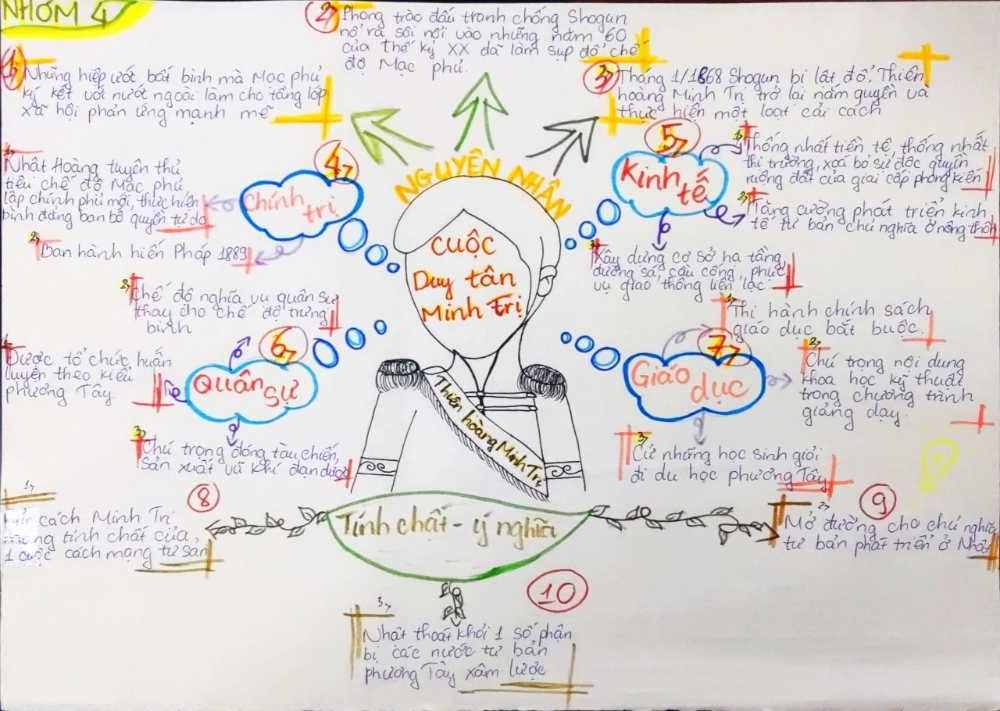 NHÓM 4
1
Những hiệp ước bất bình mà Mạc phủ
ký kết với nước ngoài làm cho tầng lớp
xã hội phản ứng mạnh mẽ
2
Phong trào đấu tranh chống Shogun
nổ ra sôi nổi vào những năm 60
của thế kỷ XX đã làm sụp đổ chế
độ Mạc phủ.
3
Tháng 1/1868 Shogun bị lật đổ. Thiên
hoàng Minh Trị trở lại nắm quyền và
thực hiện một loạt cải cách
NGUYÊN NHÂN
CUỘC
Duy tân
Minh Trị
Thiên hoàng Minh Trị
4
Chính
trị
1
Nhật Hoàng tuyên thủ
tiêu chế độ Mạc phủ
lập chính phủ mới, thực hiện
bình đẳng ban bố quyền tự do
2
Ban hành hiến Pháp 1889
5
Kinh
tế
1
Thống nhất tiền tệ, thống nhất
thị trường, xoá bỏ sự độc quyền
ruộng đất của giai cấp phong kiến
2
Tăng cường phát triển kinh
tế tư bản chủ nghĩa ở nông thôn
3
Xây dựng cơ sở hạ tầng,
đường sá, cầu cống, phục
vụ giao thông liên lạc
6
Quân
sự
2
Chế độ nghĩa vụ quân sự
thay cho chế độ trưng
binh
1
Được tổ chức huấn
luyện theo kiểu
phương Tây.
3
Chú trọng đóng tàu chiến,
sản xuất vũ khí đạn dược
7
Giáo
dục
1
Thi hành chính sách
giáo dục bắt buộc.
2
Chú trọng nội dung
khoa học kỹ thuật
trong chương trình
giảng dạy.
3
Cử những học sinh giỏi
đi du học phương Tây
Tính chất - ý nghĩa
8
1
cách Minh Trị
mang tính chất của
1 cuộc cách mạng tư sản
9
2
Mở đường cho chủ nghĩa
tư bản phát triển ở Nhật
10
3
Nhật thoát khỏi 1 số phận
bị các nước tư bản
phương Tây xâm lược